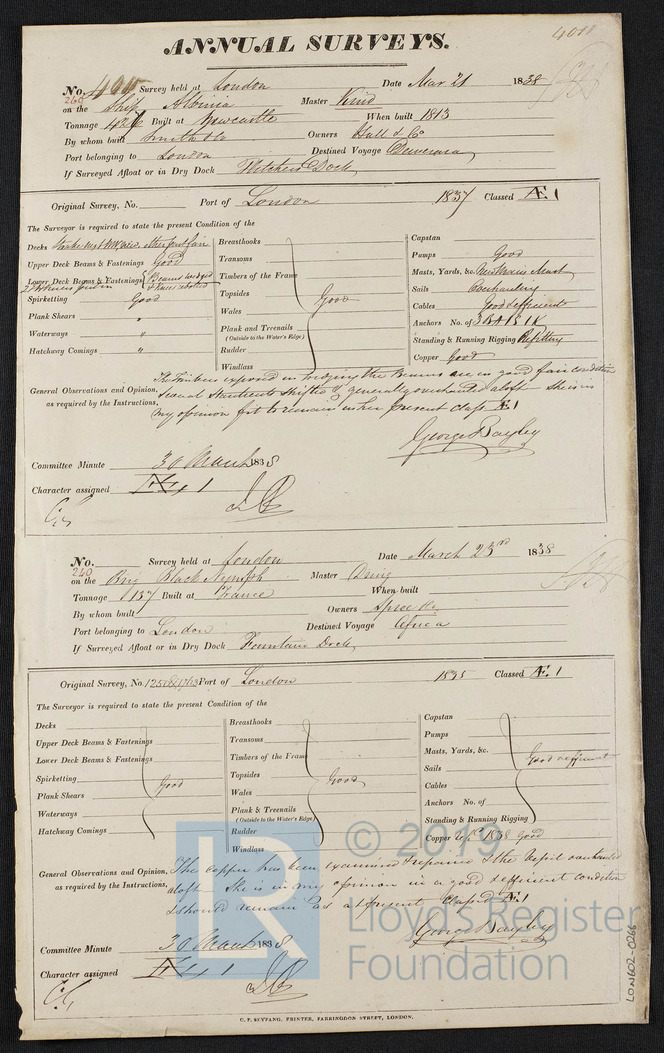 4011
ANNUAL SURVEYS.
No. 4011 Survey held at London Date Mar 21 1838
260
on the Ship Albinia Master Kind
Tonnage 426 Built at Newcastle When built 1813
By whom built Smith & Co Owners Hall & Co
Port belonging to London Destined Voyage Demerara
If Surveyed Afloat or in Dry Dock Fletchers Dock
Original Survey, No. Port of London 1837 Classed Æ 1
The Surveyor is required to state the present Condition of the
Decks
Upper Deck Beams & Fastenings Good
Lower Deck Beams & Fastenings Beams wedged
Spirketting Good
Plank Shears "
Waterways "
Hatchway Comings "
Breasthooks
Transoms
Timbers of the Frame
Topsides
Wales
Plank and Treenails
(Outside to the Water's Edge)
Rudder
Windlass
Good
Capstan
Pumps Good
Masts, Yards, &c. New Main Mast
Sails Overhauling
Cables Good & efficient
Anchors No. of 3 B & 1 S 1 K
Standing & Running Rigging Refitting
Copper Good
General Observations and Opinion, The Timbers exposed in wedging the Beams are in good fair condition
as required by the Instructions, Several Shifted & generally overhauled aloft She is in
my opinion fit to remain in her present class Æ 1
George Bayley
Committee Minute 30 March 1838
Character assigned Æ 1
No. Survey held at London Date March 23rd 1838
240
on the Brig Black Nymph Master
Tonnage 137 Built at France When built
By whom built Owners
Port belonging to London Destined Voyage Africa
If Surveyed Afloat or in Dry Dock Fountain Dock
Original Survey, No. Port of London 1835 Classed Æ 1
The Surveyor is required to state the present Condition of the
Decks
Upper Deck Beams & Fastenings
Lower Deck Beams & Fastenings
Spirketting
Plank Shears
Waterways
Hatchway Comings
Good
Breasthooks
Transoms
Timbers of the Frame
Topsides
Wales
Plank & Treenails
(Outside to the Water's Edge)
Rudder
Windlass
Good
Capstan
Pumps
Masts, Yards, &c.
Sails
Cables
Anchors No. of
Standing & Running Rigging
Good & efficient
Copper 1838 Good
General Observations and Opinion, The copper has been examined & repaired & the Vessel overhauled
as required by the Instructions, aloft She is in my opinion in a good & efficient condition
& should remain as at present Class'd Æ 1
George Bayley
Committee Minute 30 March 1838
Character assigned Æ 1
C. F. SEYFANG, PRINTER, FARRINGDON STREET, LONDON.
LR
© 2019
Lloyd's Register
Foundation
LON602-0266